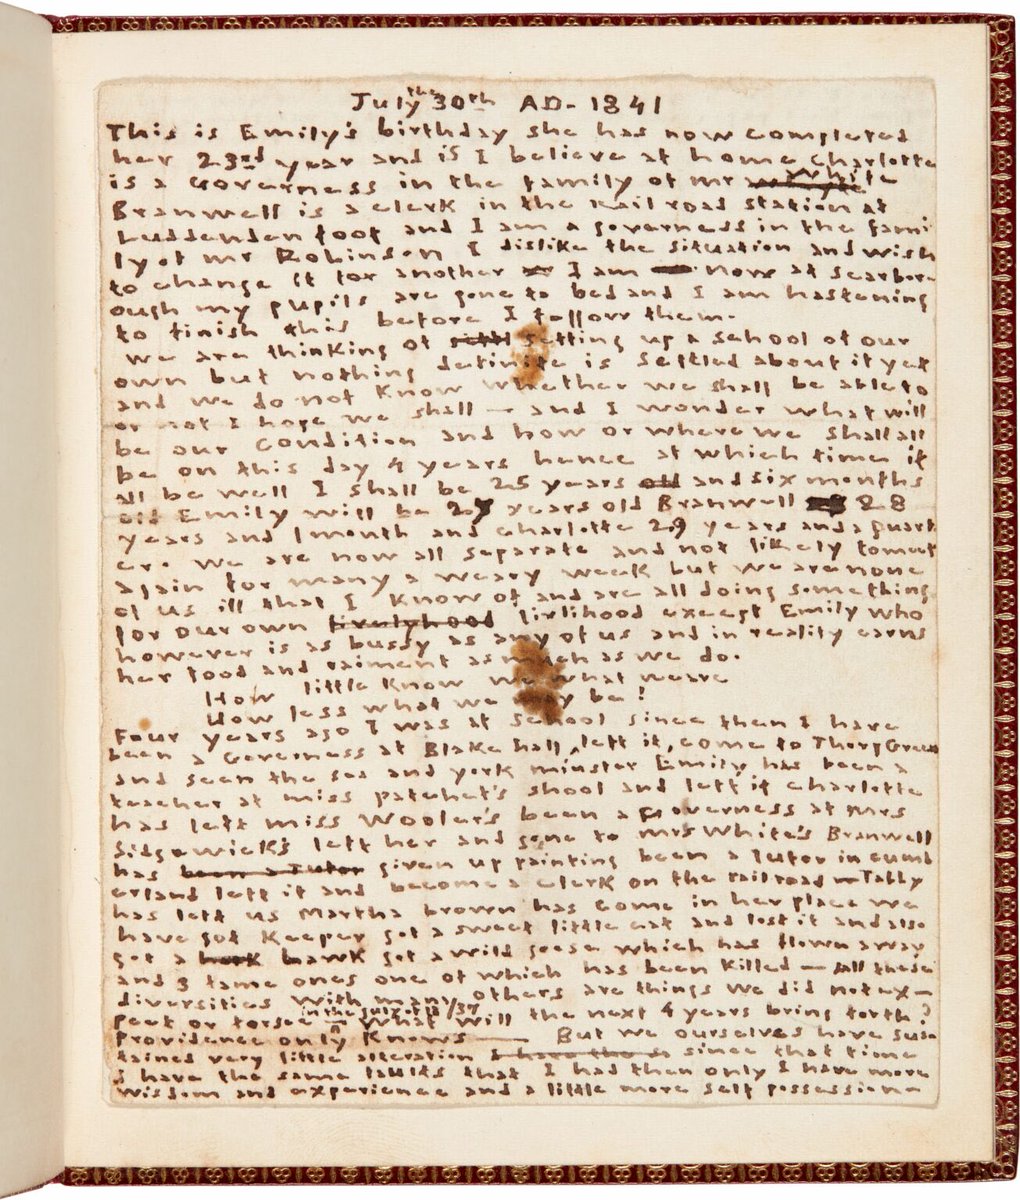 July the 30th AD- 1841
This is Emily's birthday she has now completed
her 23rd year and is I believe at home Charlotte
is a Governess in the family of mr White
Branwell is a clerk in the rail road station at
Luddenden foot and I am a governess in the fami
ly of mr Robinson I dislike the situation and wish
to change it for another I am now at scarbor
ough my pupils are gone to bed and I am hastening
to finish this before I follow them.
We are thinking of setting up a school of our
own but nothing definite is settled about it yet
and we do not know whether we shall be able to
or not I hope we shall — and I wonder what will
be our condition and how or where we shall all
be on this day 4 years hence at which time if
all be well I shall be 25 years old and six months
old Emily will be 27 years old Branwell 28
years and 1 month and Charlotte 29 years and a quart
er. We are now all separate and not likely to meet
again for many a weary week but we are none
of us ill that I know of and are all doing something
for our own livelyhood livlihood except Emily who
however is as bussy as any of us and in reality earns
her food and raiment as much as we do.
How little know we what we are
How less what we may be!
Four years ago I was at school since then I have
been a Governess at Blake hall, left it, come to Thorp Green
and seen the sea and york minster Emily has been a
teacher at miss patchet's shool and left it Charlotte
has left miss Wooler's been a Governess at Mrs
Sidgwick's left her and gone to Mrs White's Branwell
has been a Tutor given up painting been a Tutor in cumb
erland left it and become a clerk on the railroad — Tabby
has left us Martha brown has come in her place we
have got Keeper got a sweet little cat and lost it and also
got a hawk got a wild goose which has flown away
and 3 tame ones one of which has been killed — All these
diversities with many others are things we did not ex-
pect or forsee in the July of 18/37 — What will the next 4 years bring forth?
Providence only Knows — But we ourselves have sus
tained very little alteration I have the s since that time
I have the same faults that I had then only I have more
wisdom and experience and a little more self possession